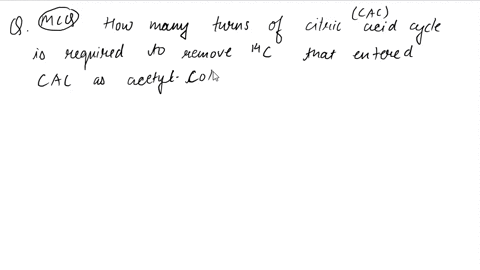 Q. MCQ How many turns of citric (CAC) acid cycle
is required to remove ¹⁴C that entered
CAC as acetyl-CoA